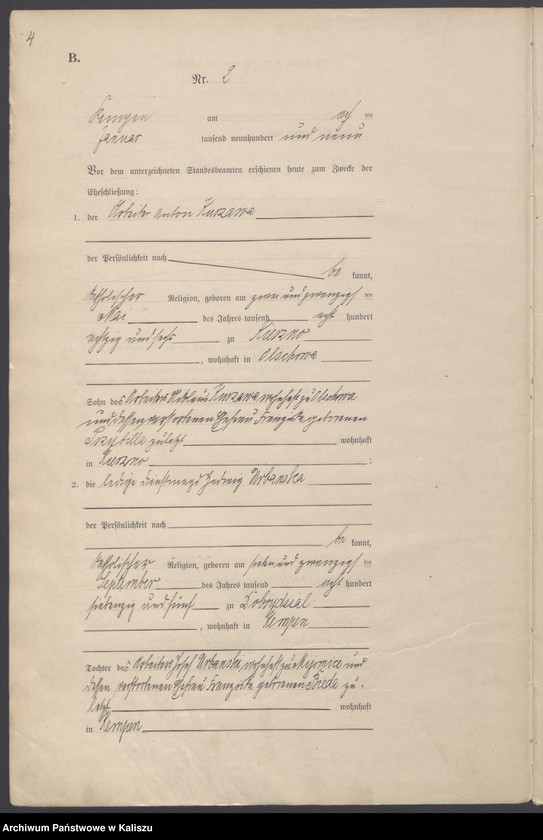 4
B.
Nr. 2
Kempen am acht ten
Januar tausend neunhundert und neun
Vor dem unterzeichneten Standesbeamten erschienen heute zum Zwecke der
Eheschließung:
1. der Arbeiter Anton Kurzawa
der Persönlichkeit nach
be kannt,
katholischer Religion, geboren am zwei und zwanzigsten
Mai des Jahres tausend acht hundert
achtzig und sechs zu Kierzno
, wohnhaft in Olschowa
Sohn des Arbeiters Kurzawa wohnhaft zu Olschowa
und dessen verstorbenen Ehefrau Franziska geborenen
Przybilla zuletzt wohnhaft
in Kierzno ;
2. die ledige Dienstmagd Hedwig Urbanska
der Persönlichkeit nach
be kannt,
katholischer Religion, geboren am sieben und zwanzigsten
September des Jahres tausend acht hundert
siebenzig und fünf zu Dobrydzial
, wohnhaft in Kempen
Tochter des Arbeiters Josef Urbanski wohnhaft zu Myjomice und
dessen verstorbenen Ehefrau Franziska geborenen zu-
letzt wohnhaft
in Kempen
Archiwum Państwowe w Kaliszu